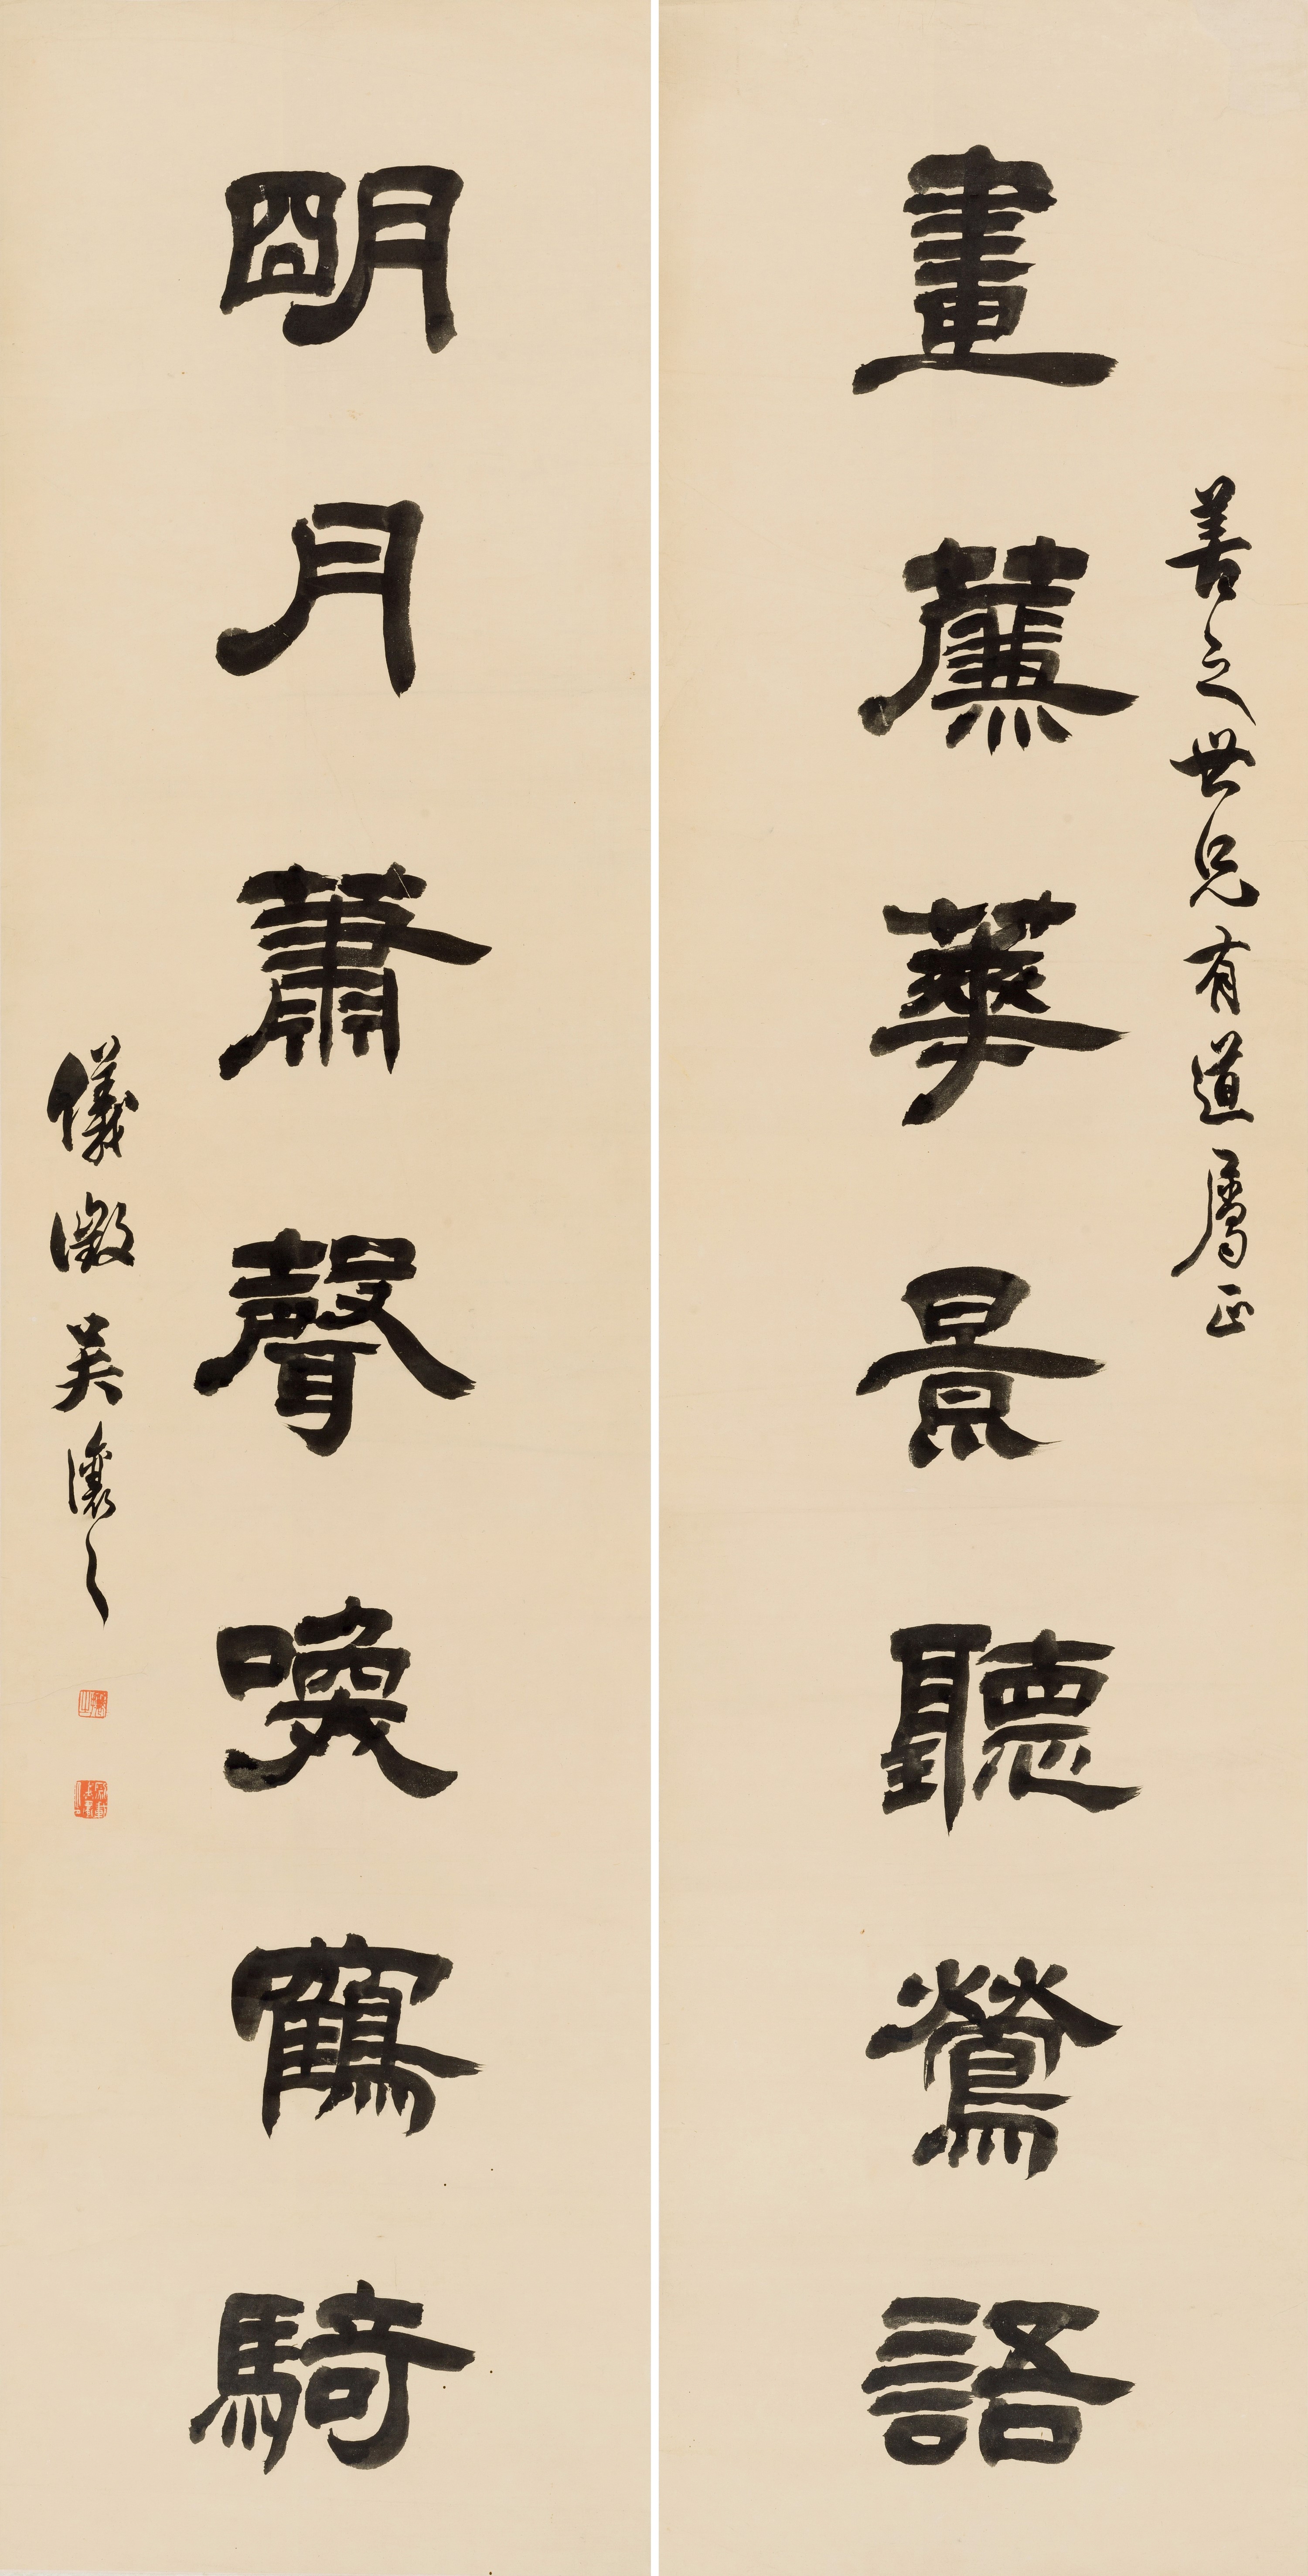 善之世兄有道屬正
畫薕華景聽鶯語
朙月蕭聲喚鶴騎
儀徵吳讓之